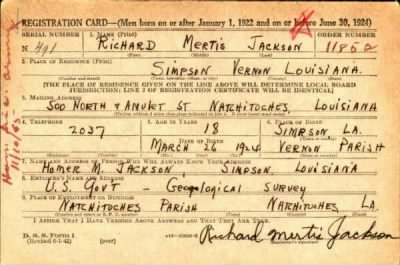 REGISTRATION CARD—(Men born on or after January 1, 1922 and on or before June 30, 1924)
SERIAL NUMBER 1. NAME (Print) ORDER NUMBER
N 491 RICHARD MERTIS JACKSON 11862
2. PLACE OF RESIDENCE (Print)
SIMPSON VERNON LOUISIANA.
[THE PLACE OF RESIDENCE GIVEN ON THE LINE ABOVE WILL DETERMINE LOCAL BOARD
JURISDICTION; LINE 2 OF REGISTRATION CERTIFICATE WILL BE IDENTICAL]
3. MAILING ADDRESS
500 NORTH & AMULET ST NATCHITOCHES, LOUISIANA
4. TELEPHONE 5. AGE IN YEARS 6. PLACE OF BIRTH
2037 18 SIMPSON, LA.
DATE OF BIRTH
MARCH 26 1924 VERNON PARISH
7. NAME AND ADDRESS OF PERSON WHO WILL ALWAYS KNOW YOUR ADDRESS
HOMER M. JACKSON SIMPSON, LOUISIANA
8. EMPLOYER'S NAME AND ADDRESS
U.S. GOV'T — GEOLOGICAL SURVEY
9. PLACE OF EMPLOYMENT OR BUSINESS
NATCHITOCHES PARISH NATCHITOCHES LA.
I AFFIRM THAT I HAVE VERIFIED ABOVE ANSWERS AND THAT THEY ARE TRUE.
D. S. S. Form 1
(Revised 6-1-42)
Richard Mertis Jackson